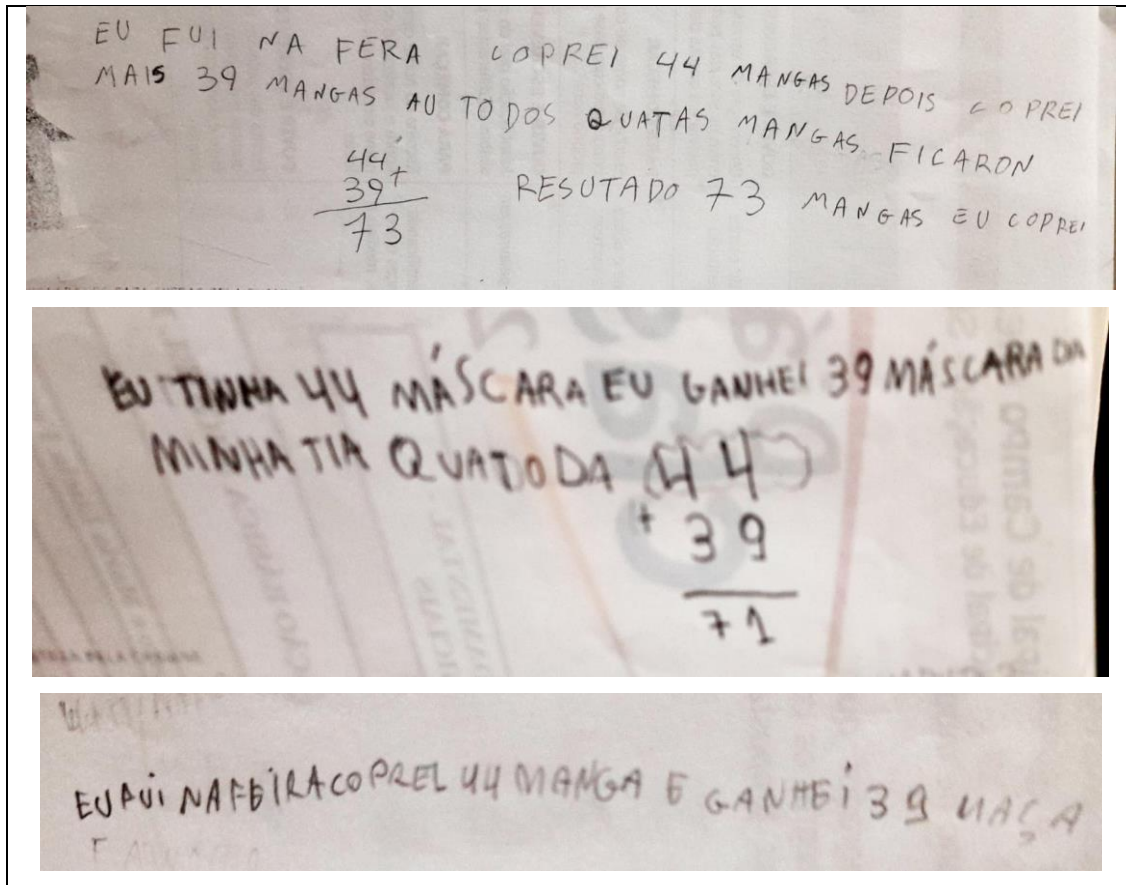 EU FUI NA FERA COPREI 44 MANGAS DEPOIS COPREI
MAIS 39 MANGAS AU TODOS QUATAS MANGAS FICARON
44
39+
73
RESUTADO 73 MANGAS EU COPREI
EU TINHA 44 MÁSCARA EU GANHEI 39 MÁSCARA DA
MINHA TIA QUATODA 44
+ 39
71
EU FUI NA FEIRA COPREI 44 MANGA E GANHEI 39 MAÇA